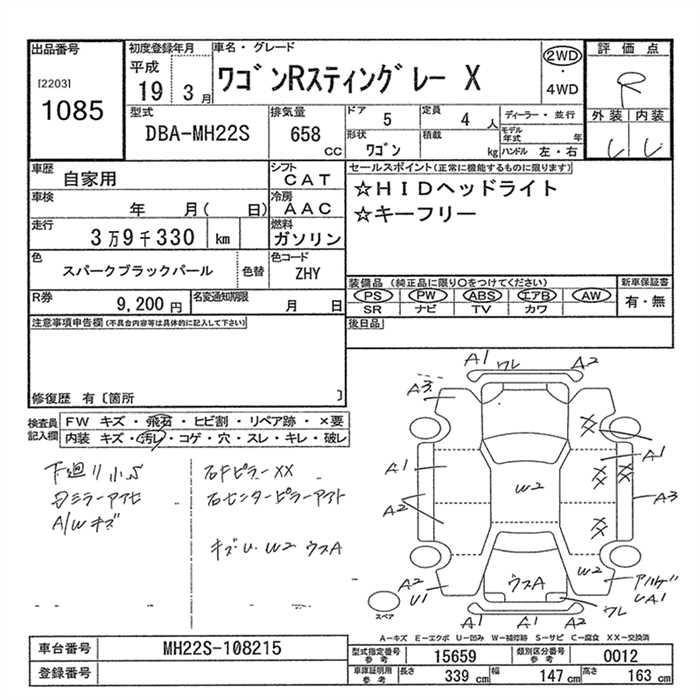 出品番号
[2203]
1085
初度登録年月
平成
19 3月
車名・グレード
ワゴンRスティングレー X
2WD
・
4WD
評価点
R
外装 内装
型式
DBA-MH22S
排気量
658
cc
ドア
5
定員
4 人
形状
ワゴン
積載
kg
ディーラー・並行
モデル年式 年
ハンドル 左・右
車歴
自家用
シフト
CAT
車検
年 月( 日)
冷房
AAC
走行
3万9千330 km
燃料
ガソリン
色
スパークブラックパール
色替
色コード
ZHY
R券
9,200円
名変通知期限
月 日
セールスポイント(正常に機能するものに限ります)
☆HIDヘッドライト
☆キーフリー
装備品(純正品に限り○をつけてください)
PS PW ABS エアB AW
SR ナビ TV カワ
新車保証書
有・無
後日品
注意事項申告欄(不具合内容等は具体的に記入して下さい)
修復歴 有〔箇所 〕
検査員記入欄
FW キズ・飛石・ヒビ割・リペア跡・×要
内装 キズ・汚レ・コゲ・穴・スレ・キレ・破レ
下廻り小サ
A/Wキズ
右FピラーXX
右センターピラーアト
キズU W2 ウスA
A1 ワレ A2
A3
A1
A2
W2
A1
A3
W2
A2
U1
ウスA
UA1
ワレ
A1 A1 A2
スペア
A-キズ E-エクボ U-凹み W-補修跡 S-サビ C-腐食 XX-交換済
車台番号
MH22S-108215
登録番号
型式指定番号
参考
15659
類別区分番号
参考
0012
車庫証明用
参考
長さ
339 cm
幅
147 cm
高さ
163 cm